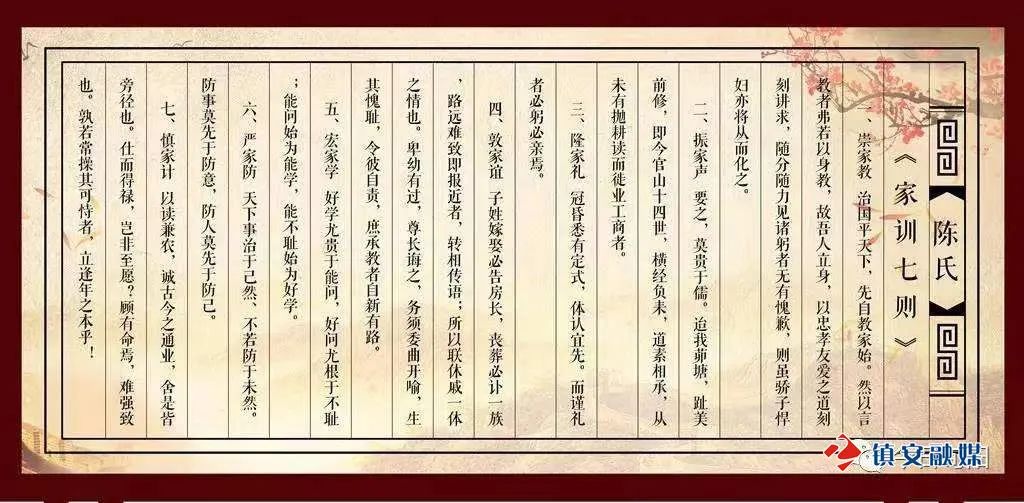 陈氏
《家训七则》
一、崇家教 治国平天下，先自教家始。然以言
教者弗若以身教，故吾人立身，以忠孝友爱之道刻
刻讲求，随分随力见诸躬者无有愧歉，则虽骄子悍
妇亦将从而化之。
二、振家声 要之，莫贵于儒。迨我茆塘，趾美
前修，即今官山十四世，横经负耒，道素相承，从
未有抛耕读而徙业工商者。
三、隆家礼 冠昏悉有定式，体认宜先。而谨礼
者必躬必亲焉。
四、敦家谊 子姓嫁娶必告房长，丧葬必讣一族
，路远难致即报近者，转相传语；所以联休戚一体
之情也。卑幼有过，尊长诲之，务须委曲开喻，生
其愧耻，令彼自责，庶承教者自新有路。
五、宏家学 好学尤贵于能问，好问尤根于不耻
；能问始为能学，能不耻始为好学。
六、严家防 天下事治于己然、不若防于未然。
防事莫先于防意，防人莫先于防己。
七、慎家计 以读兼农，诚古今之通业，舍是皆
旁径也。仕而得禄，岂非至愿？顾有命焉，难强致
也。孰若常操其可恃者，立逢年之本乎！
镇安融媒